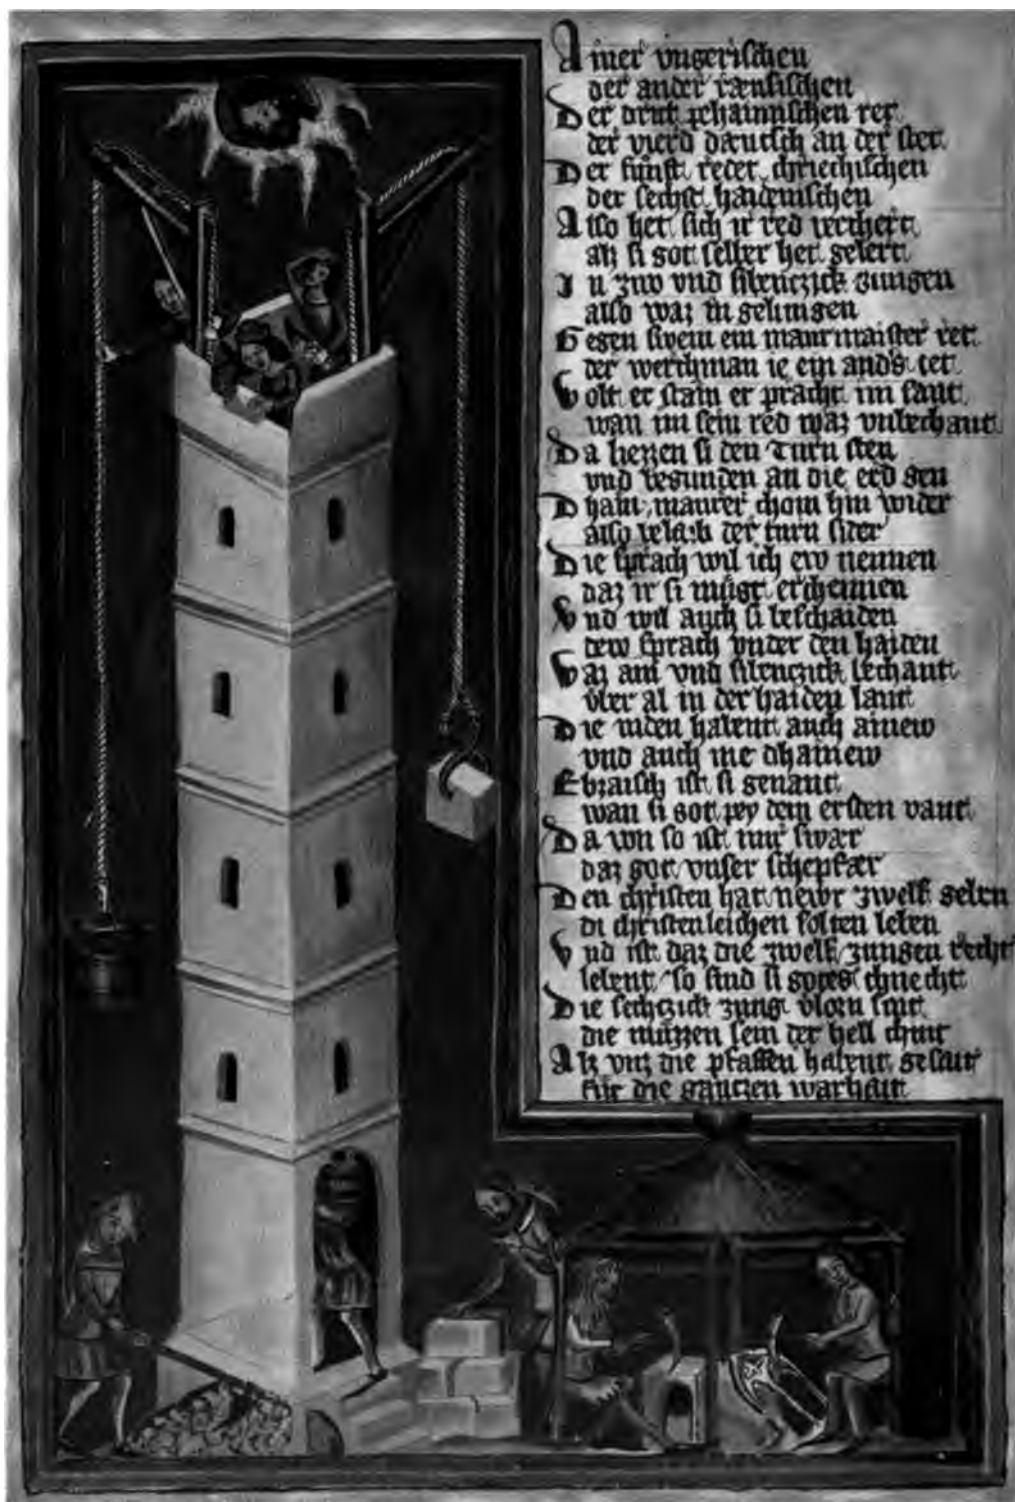 Ainer vngerischen
der ander
Der drit pehaimischen ret
der vierd dæutsch an der stet
Der fünft redet chriechischen
der sechst haidenischen
Also het sich ir red verchert
alz si got selber het gelert
In zwo vnd sibenczick zungen
also waz in gelungen
Gegen swem ein maurmaister ret
der werchman ie ein anders tet
Wolt er stain er pracht im sant
wan im sein red waz vnbechant
Da liezzen si den Turn sten
vnd begunden an die erd gen
Dhain maurer chom hin wider
also belaib der turn sider
Die sprach wil ich ew nennen
daz ir si mügt erchennen
Vnd wil auch si beschaiden
dew sprach vnder den haiden
Waz ain vnd sibenczick bechant
vber al in der haiden lant
Die iuden habent auch ainew
vnd auch me dhainew
Ebraisch ist si genant
wan si got pey dem ersten vant
Da von so ist mir swær
daz got vnser schepfær
Den christen hat newr zwelf geben
di christenleichen solten leben
Vnd ist daz die zwelf zungen recht
lebent so sind si gotes chnecht
Die sechczick zung
die müzzen sein der hell chint
Alz vnz die pfaffen habent gesait
für die gantzen warhait